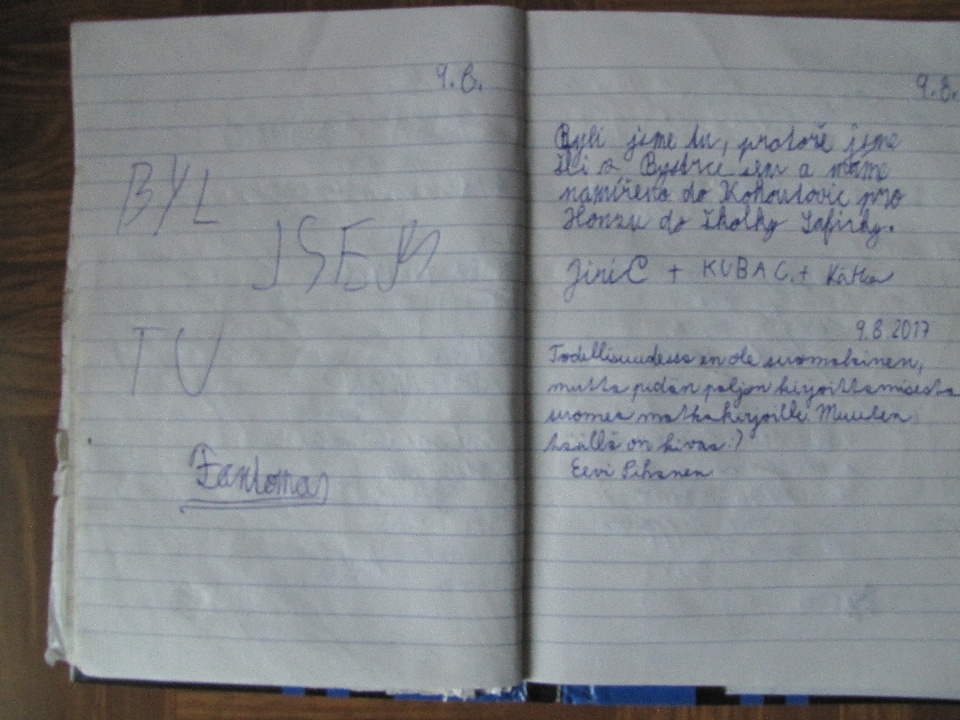 9.8.
BYL
JSEM
TU
Fantomas
9.8.
Byli jsme tu, protože jsme
šli z Bystrce sem a máme
namířeno do Kohoutovic pro
Honzu do školky Safirky.
Jiří C + KUBA C. + Katka
9.8.2017
Todellisuudessa en ole suomalainen,
mutta pidän paljon kirjoittamisesta
suomea matkakirjoille. Muuten
täällä on kivaa :)
Eevi Pihanen